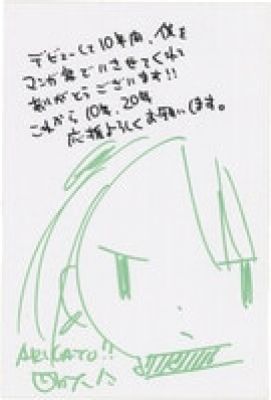 デビューして10年間、僕を
マンガ家でいさせてくれて
ありがとうございます!!
これから10年、20年
応援よろしくお願いします。
ARIGATO!!